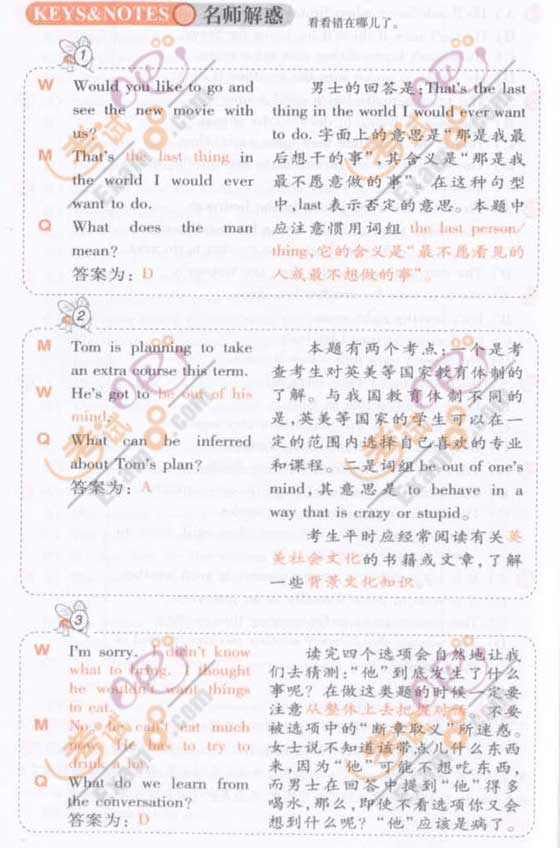 KEYS&NOTES 名师解惑 看看错在哪儿了。
1
W Would you like to go and
see the new movie with
us?
M That's the last thing in
the world I would ever
want to do.
Q What does the man
mean?
答案为：D
男士的回答是：That's the last
thing in the world I would ever want
to do. 字面上的意思是“那是我最
后想干的事”，其含义是“那是我
最不愿意做的事”。在这种句型
中，last 表示否定的意思。本题中
应注意惯用词组 the last person/
thing，它的含义是“最不愿看见的
人或最不想做的事”。
2
M Tom is planning to take
an extra course this term.
W He's got to be out of his
mind.
Q What can be inferred
about Tom's plan?
答案为：A
本题有两个考点：一个是考
查考生对英美等国家教育体制的
了解。与我国教育体制不同的
是，英美等国家的学生可以在一
定的范围内选择自己喜欢的专业
和课程。二是词组 be out of one's
mind，其意思是 to behave in a
way that is crazy or stupid。
考生平时应经常阅读有关英
美社会文化的书籍或文章，了解
一些背景文化知识。
3
W I'm sorry. I didn't know
what to bring. I thought
he wouldn't want things
to eat.
M No, he can't eat much
now. He has to try to
drink a lot.
Q What do we learn from
the conversation?
答案为：D
读完四个选项会自然地让我
们去猜测：“他”到底发生了什么
事呢？在做这类题的时候一定要
注意从整体上去把握对话，不要
被选项中的“断章取义”所迷惑。
女士说不知道该带点儿什么东西
来，因为“他”可能不想吃东西，
而男士在回答中提到“他”得多
喝水，那么，即使不看选项你又会
想到什么呢？“他”应该是病了。
考试
Exam8.com
考试
Exam8.com
考试
Exam8.com
考试
Exam8.com
考试
Exam8.com
考试
Exam8.com